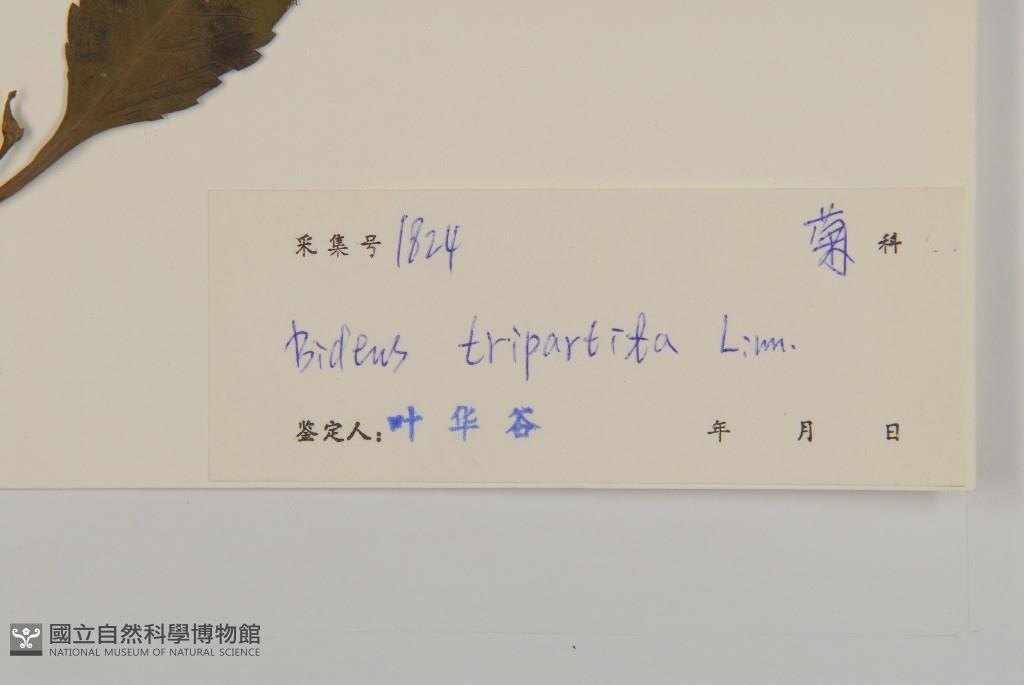 采集号 1824 菊 科
Bidens tripartita Linn.
鉴定人: 叶华谷 年 月 日
國立自然科學博物館
NATIONAL MUSEUM OF NATURAL SCIENCE